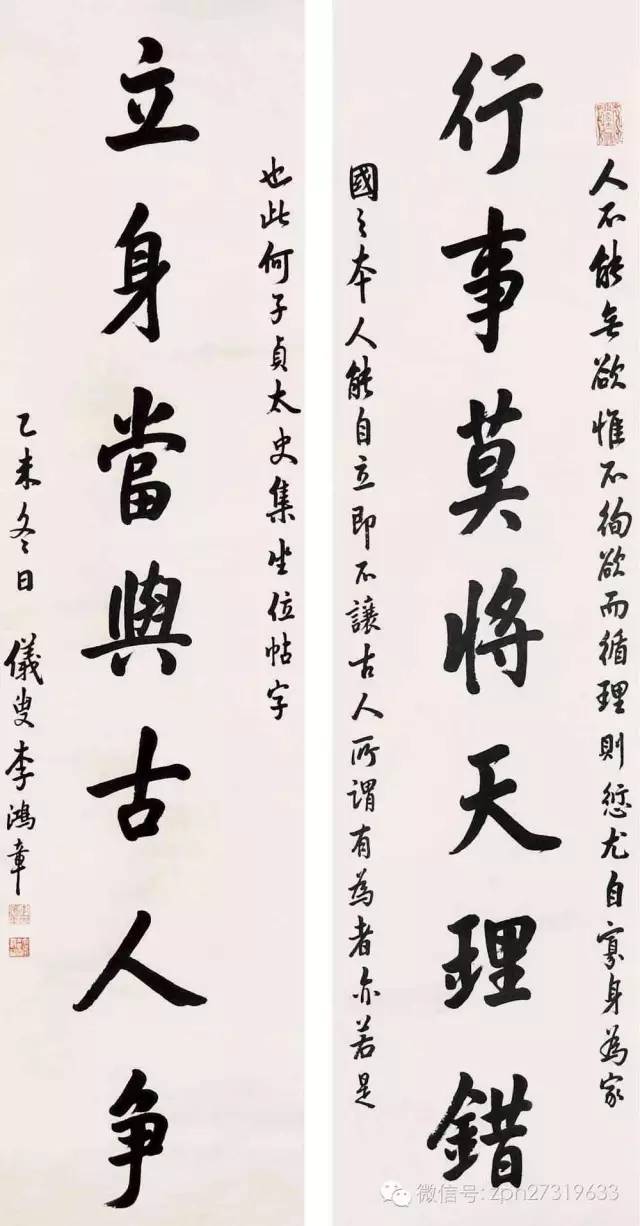 人不能無欲惟不徇欲而循理則愆尤自寡身為家
行事莫將天理錯
國之本人能自立即不讓古人所謂有為者亦若是
也此何子貞太史集坐位帖字
立身當與古人争
乙未冬日 儀叟李鴻章
微信号: zpn27319633